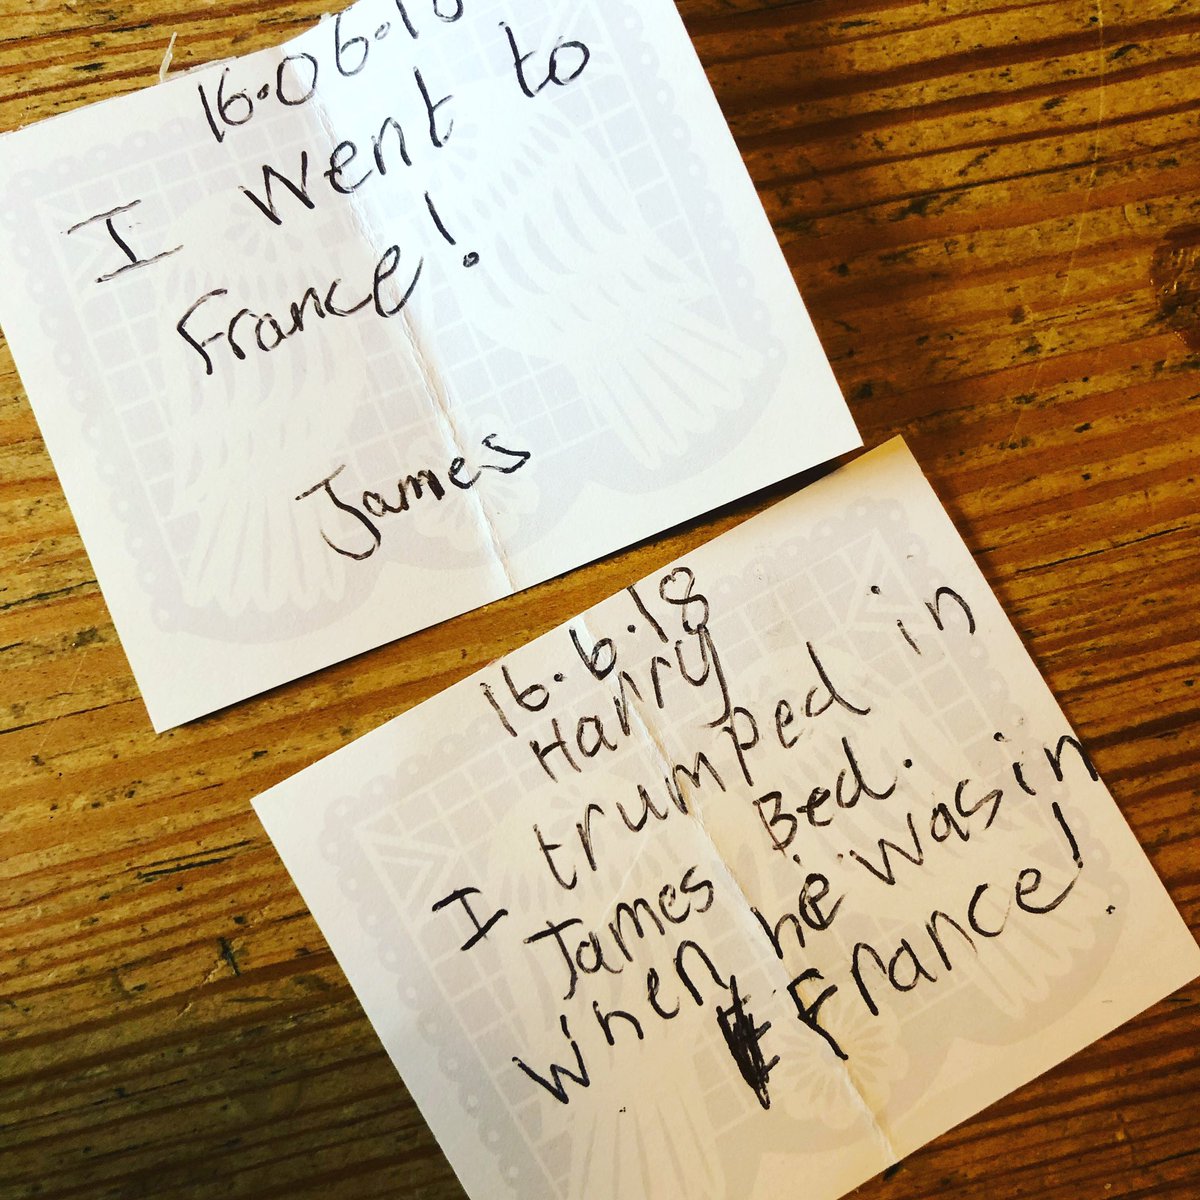 16.06.18
I went to
France!
James
16.6.18
Harry
I trumped in
James Bed.
when he was in
France!